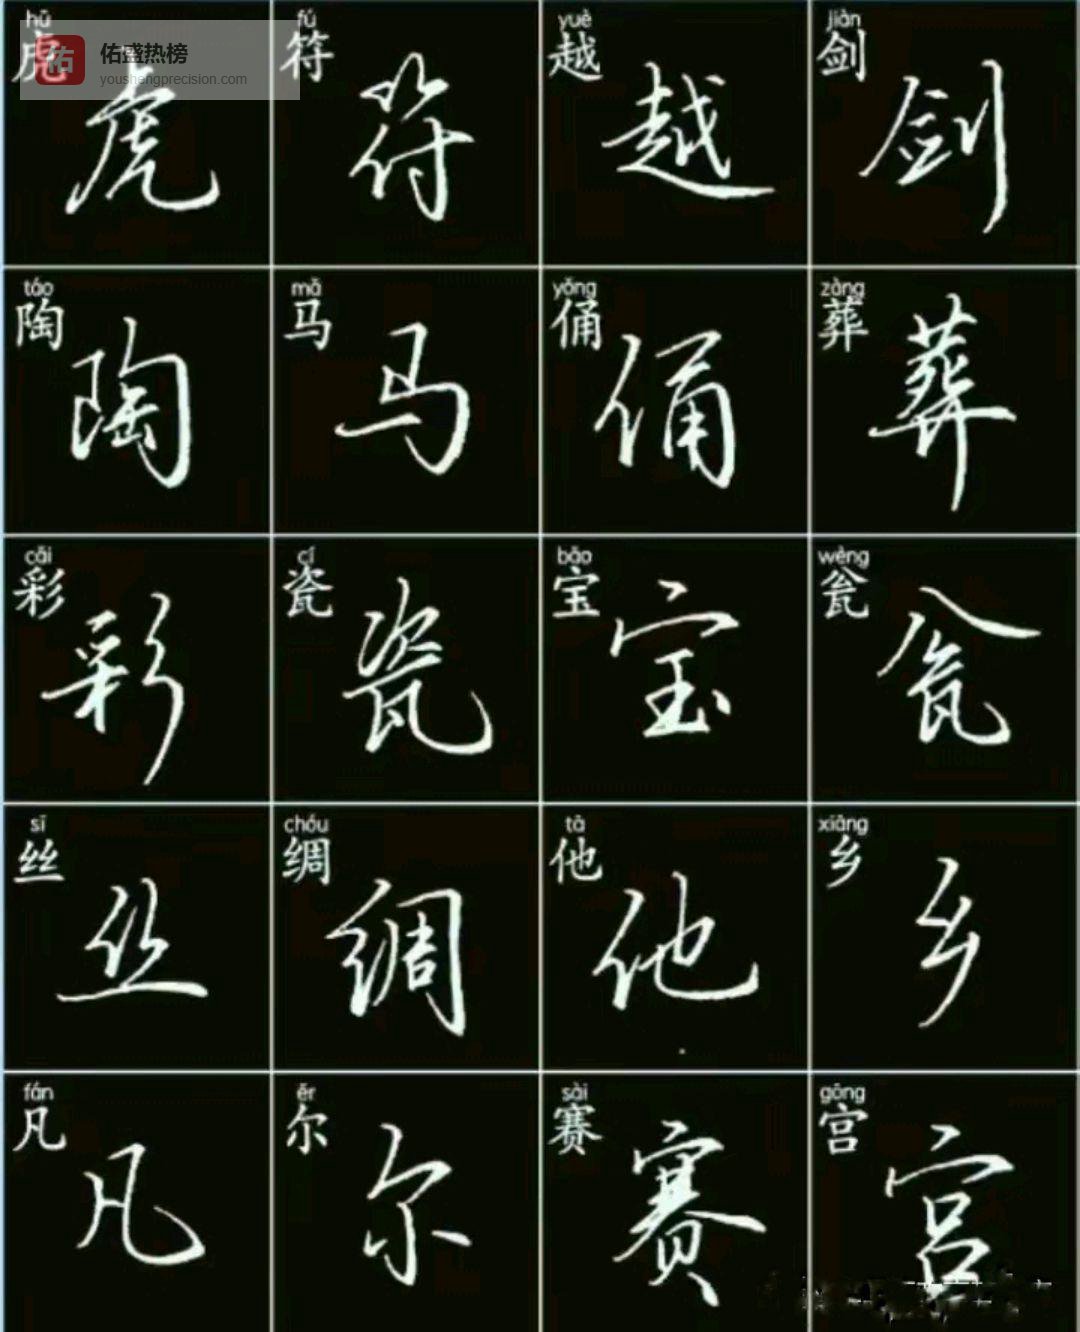 hǔ fú yuè jiàn
虎 符 越 剑
佑 佑盛热榜
youshengprecision.com
虎 符 越 剑
táo mǎ yǒng zàng
陶 马 俑 葬
陶 马 俑 葬
cǎi cí bǎo wèng
彩 瓷 宝 瓮
彩 瓷 宝 瓮
sī chóu tā xiāng
丝 绸 他 乡
丝 绸 他 乡
fán ěr sài gōng
凡 尔 赛 宫
凡 尔 赛 宫